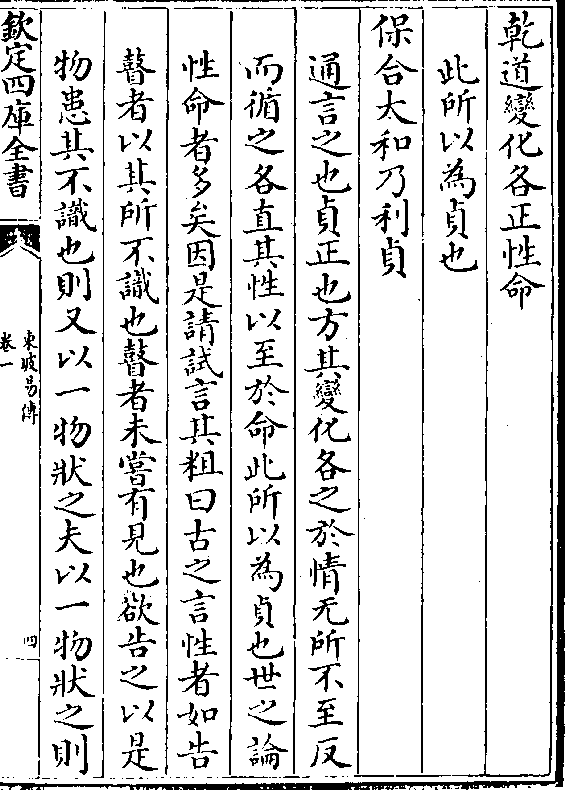 乾道變化各正性命
此所以為貞也
保合大和乃利貞
通言之也貞正也方其變化各之於情无所不至反
而循之各直其性以至於命此所以為貞也世之論
性命者多矣因是請試言其粗曰古之言性者如告
瞽者以其所不識也瞽者未嘗有見也欲告之以是
物患其不識也則又以一物狀之夫以一物狀之則
欽定四庫全書
東坡易傳
卷一
四